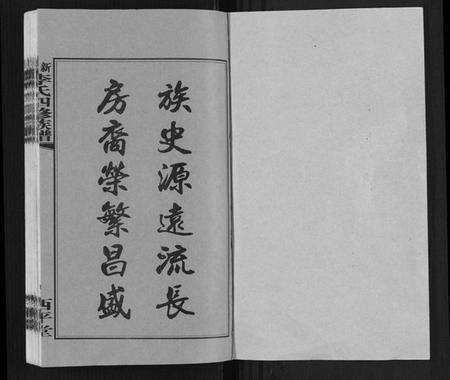 族史源遠流長
房裔榮繁昌盛
李氏四修族譜
西平堂